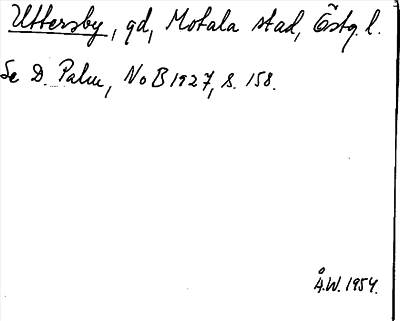 Uttersby, gd, Motala stad, Östg. l.
Se D. Palm, NoB 1927, s. 158.
Å.W. 1954.